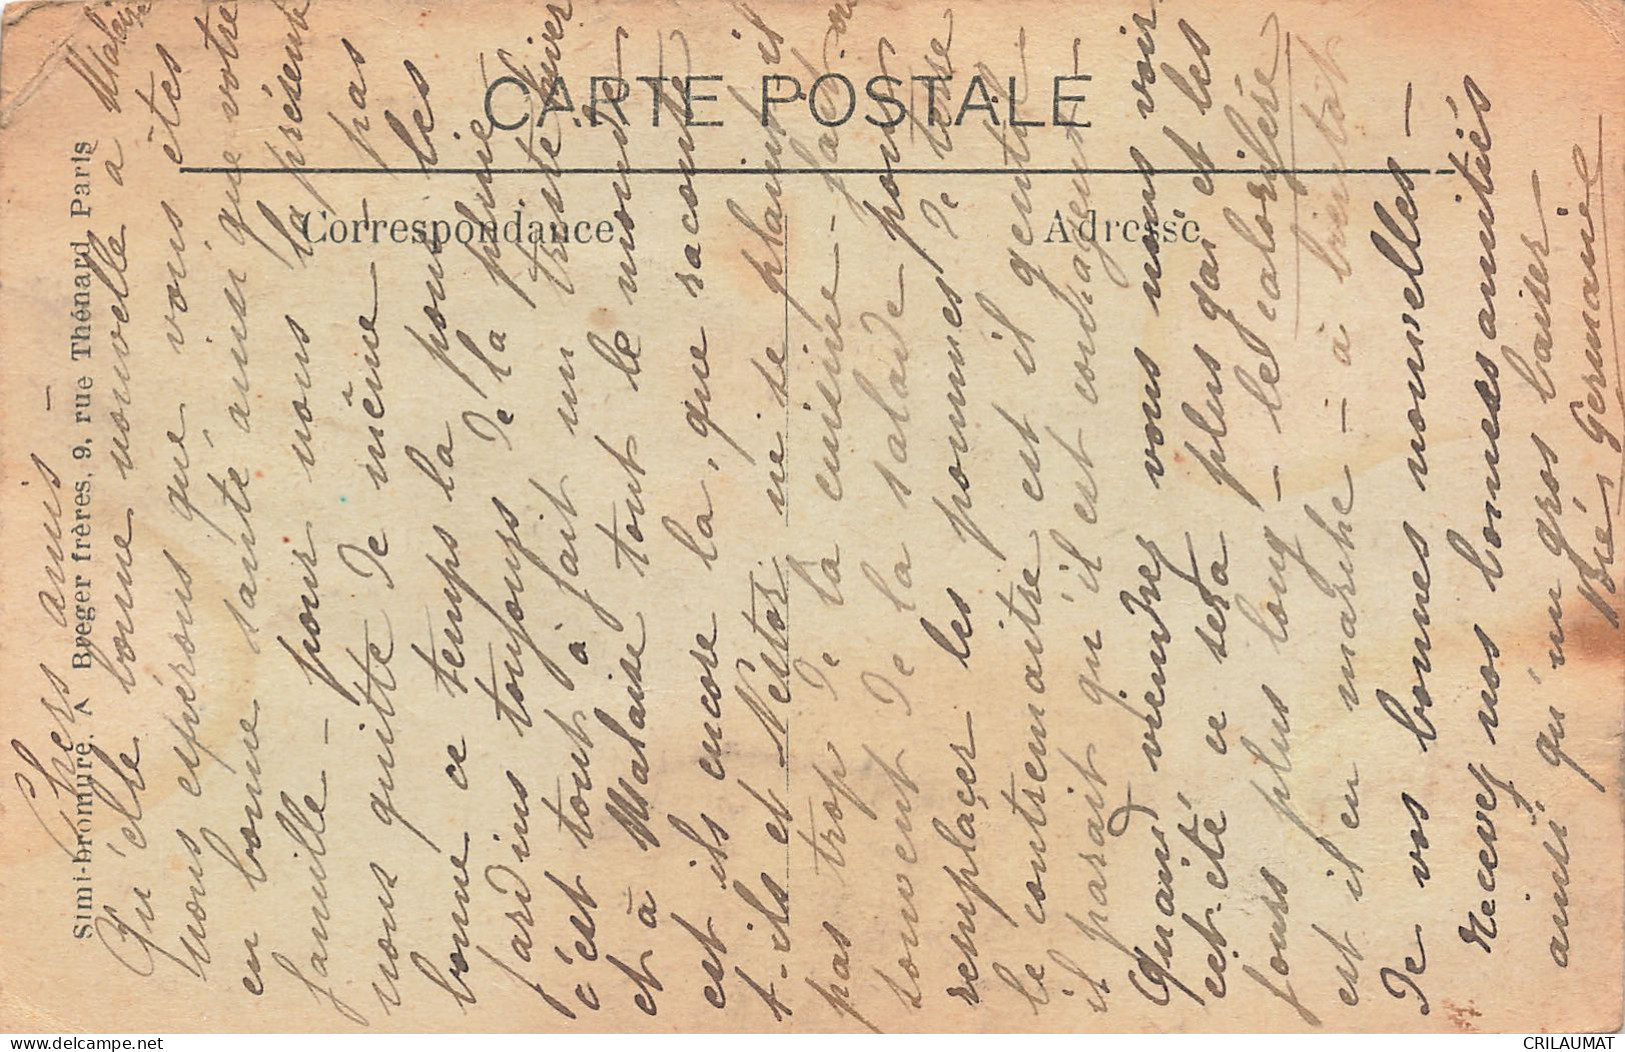 CARTE POSTALE
Correspondance
Adresse
Simi-bromure. A Breger frères, 9, rue Thénard Paris
Chers amis —
Qu'elle bonne nouvelle à Malaise
nous espérons que vous êtes
en bonne santé ainsi que votre
famille — pour nous la présente
nous quitte de même — pas
bonne ce temps la pour les
jardins toujours de la pluie
c'est tout à fait un triste hiver
et à Malaise tout le monde
est ils encore la, que raconte
t-ils et Nestor ne se plaint il
pas trop de la cuisine — fait on
souvent de la salade pour
remplacer les pommes de terre
le contremaitre est il gentil —
il parait qu'il est courageux —
Quand viendrez vous nous voir
cet été ce sera plus gai et les
jours plus long — le calorifère
est il en marche — à bientôt
de vos bonnes nouvelles —
recevez nos bonnes amitiés
ainsi qu'un gros baiser —
Germaine
CRILAUMAT